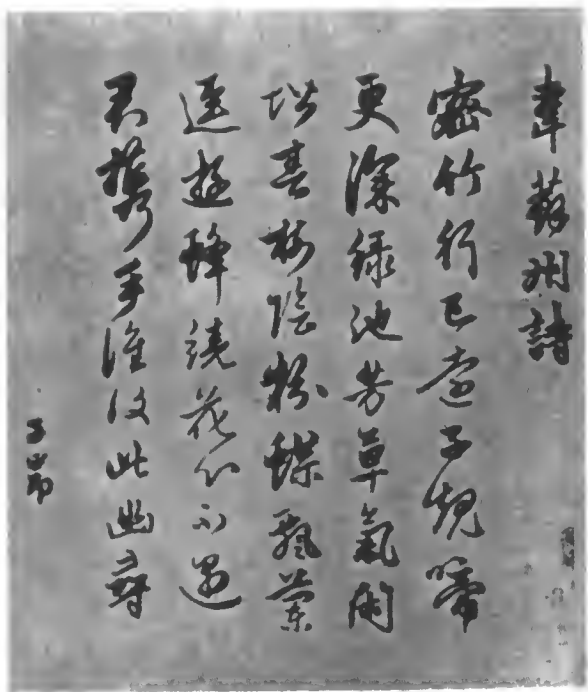 韋蘇州詩
密竹行已遠子規啼
更深綠池芳草氣閑
堦春樹陰粉蝶飄蘭
逕遊蜂繞花心不遇
君攜手誰復此幽尋
子昂